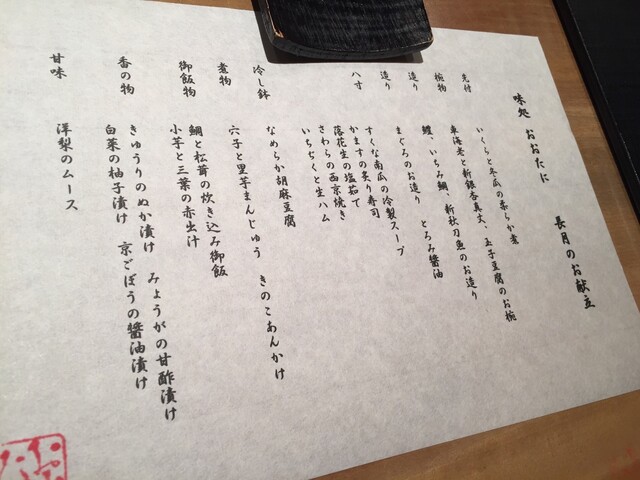 味処 おおたに
長月のお献立
先付 いくらと冬瓜の柔らか煮
椀物 車海老と新銀杏真丈、玉子豆腐のお椀
造り 鰹、いちみ鯛、新秋刀魚のお造り
造り まぐろのお造り とろみ醤油
八寸 すくな南瓜の冷製スープ
かますの炙り寿司
落花生の塩茹で
さわらの西京焼き
いちぢくと生ハム
冷し鉢 なめらか胡麻豆腐
煮物 六子と里芋まんじゅう きのこあんかけ
御飯物 鯛と松茸の炊き込み御飯
小芋と三葉の赤出汁
香の物 きゅうりのぬか漬け みょうがの甘酢漬け
白菜の柚子漬け 京ごぼうの醤油漬け
甘味 洋梨のムース